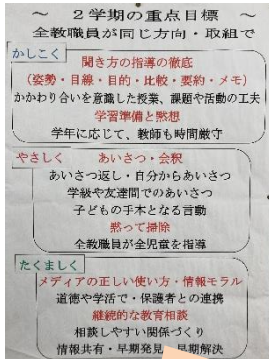 ～ ２学期の重点目標 ～
全教職員が同じ方向・取組で
かしこく
聞き方の指導の徹底
（姿勢・目線・目的・比較・要約・メモ）
かかわり合いを意識した授業、課題や活動の工夫
学習準備と黙想
学年に応じて、教師も時間厳守
やさしく
あいさつ・会釈
あいさつ返し・自分からあいさつ
学級や友達間でのあいさつ
子どもの手本となる言動
黙って掃除
全教職員が全児童を指導
たくましく
メディアの正しい使い方・情報モラル
道徳や学活で・保護者との連携
継続的な教育相談
相談しやすい関係づくり
情報共有・早期発見 早期解決